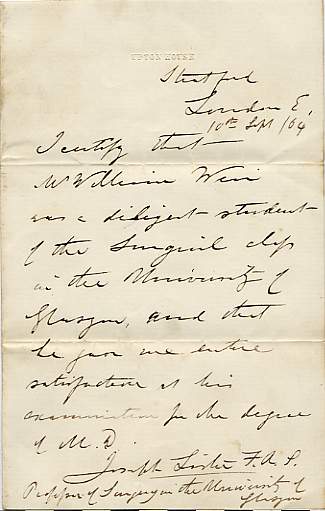 UPTON HOUSE
Stratford
London E.
10th Sept /64
I certify that
Mr William Weir
was a diligent student
of the Surgical class
in the University of
Glasgow, and that
he gave me entire
satisfaction at his
examination for the degree
of M.D.
Joseph Lister F.R.S.
Professor of Surgery in the University of
Glasgow